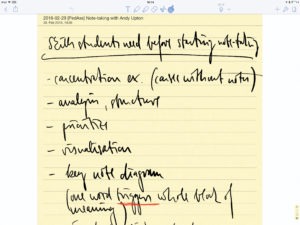 2016-02-23 [PedAss] Note-taking with Andy Upton
Skills students need before starting note-taking
- concentration ex. (cases without notes)
- analysis, structure
- priorities
- visualisation
- key note diagram
(one word triggers whole block of
meaning)